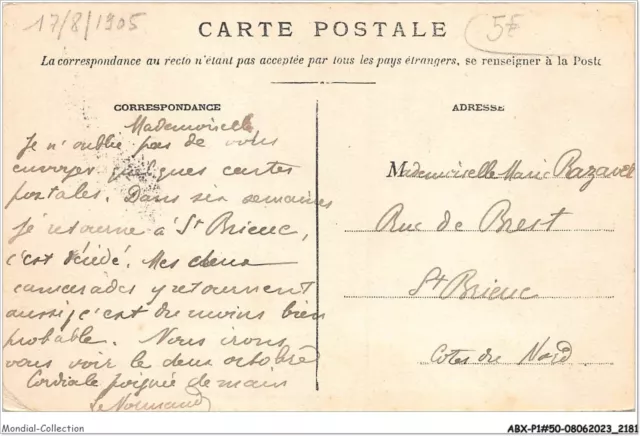 17/8/1905
CARTE POSTALE
5€
La correspondance au recto n'étant pas acceptée par tous les pays étrangers, se renseigner à la Poste
CORRESPONDANCE
Mademoiselle
Je n'oublie pas de vous
envoyer quelques cartes
postales. Dans six semaines
je retourne à St Brieuc,
c'est décidé. Mes deux
camarades y retournent
aussi, c'est du moins bien
probable. Nous irons
vous voir le deux octobre
Cordiale poignée de main
Le Normand
ADRESSE
Mademoiselle Marie
Rue de Brest
St Brieuc
Cotes du Nord
Mondial-Collection
ABX-P1#50-08062023_2181